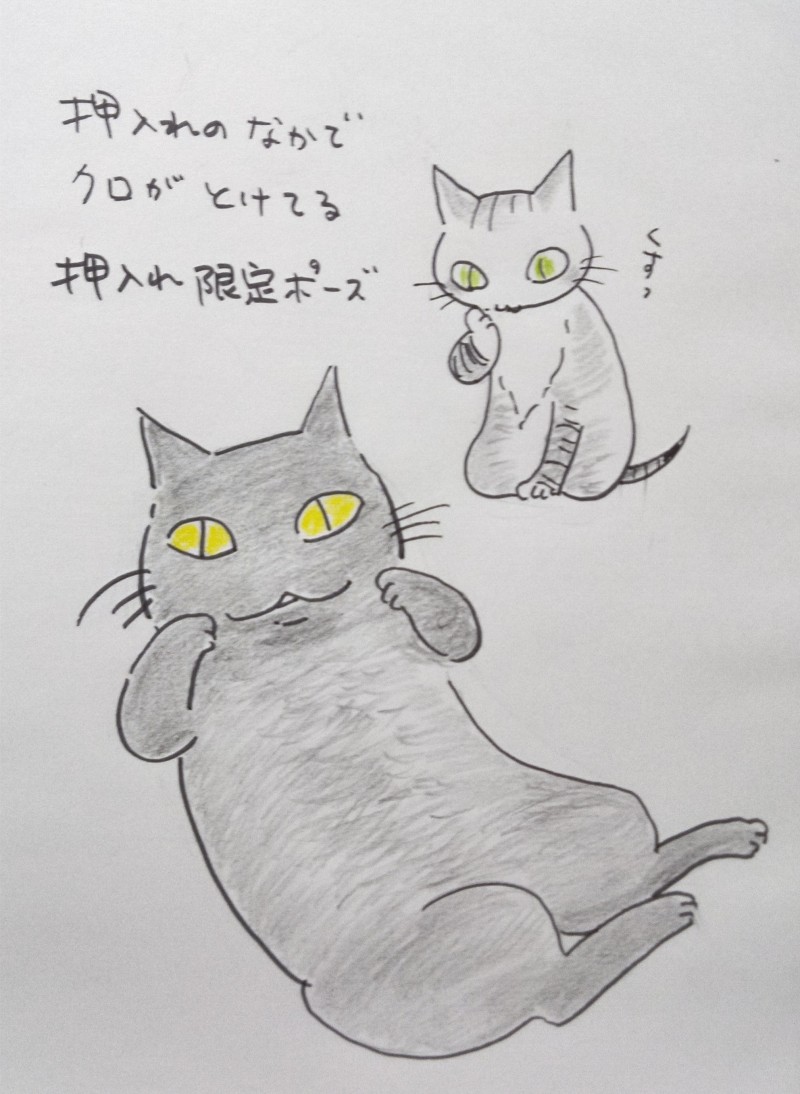 押入れのなかで
クロがとけてる
押入れ限定ポーズ
くすっ